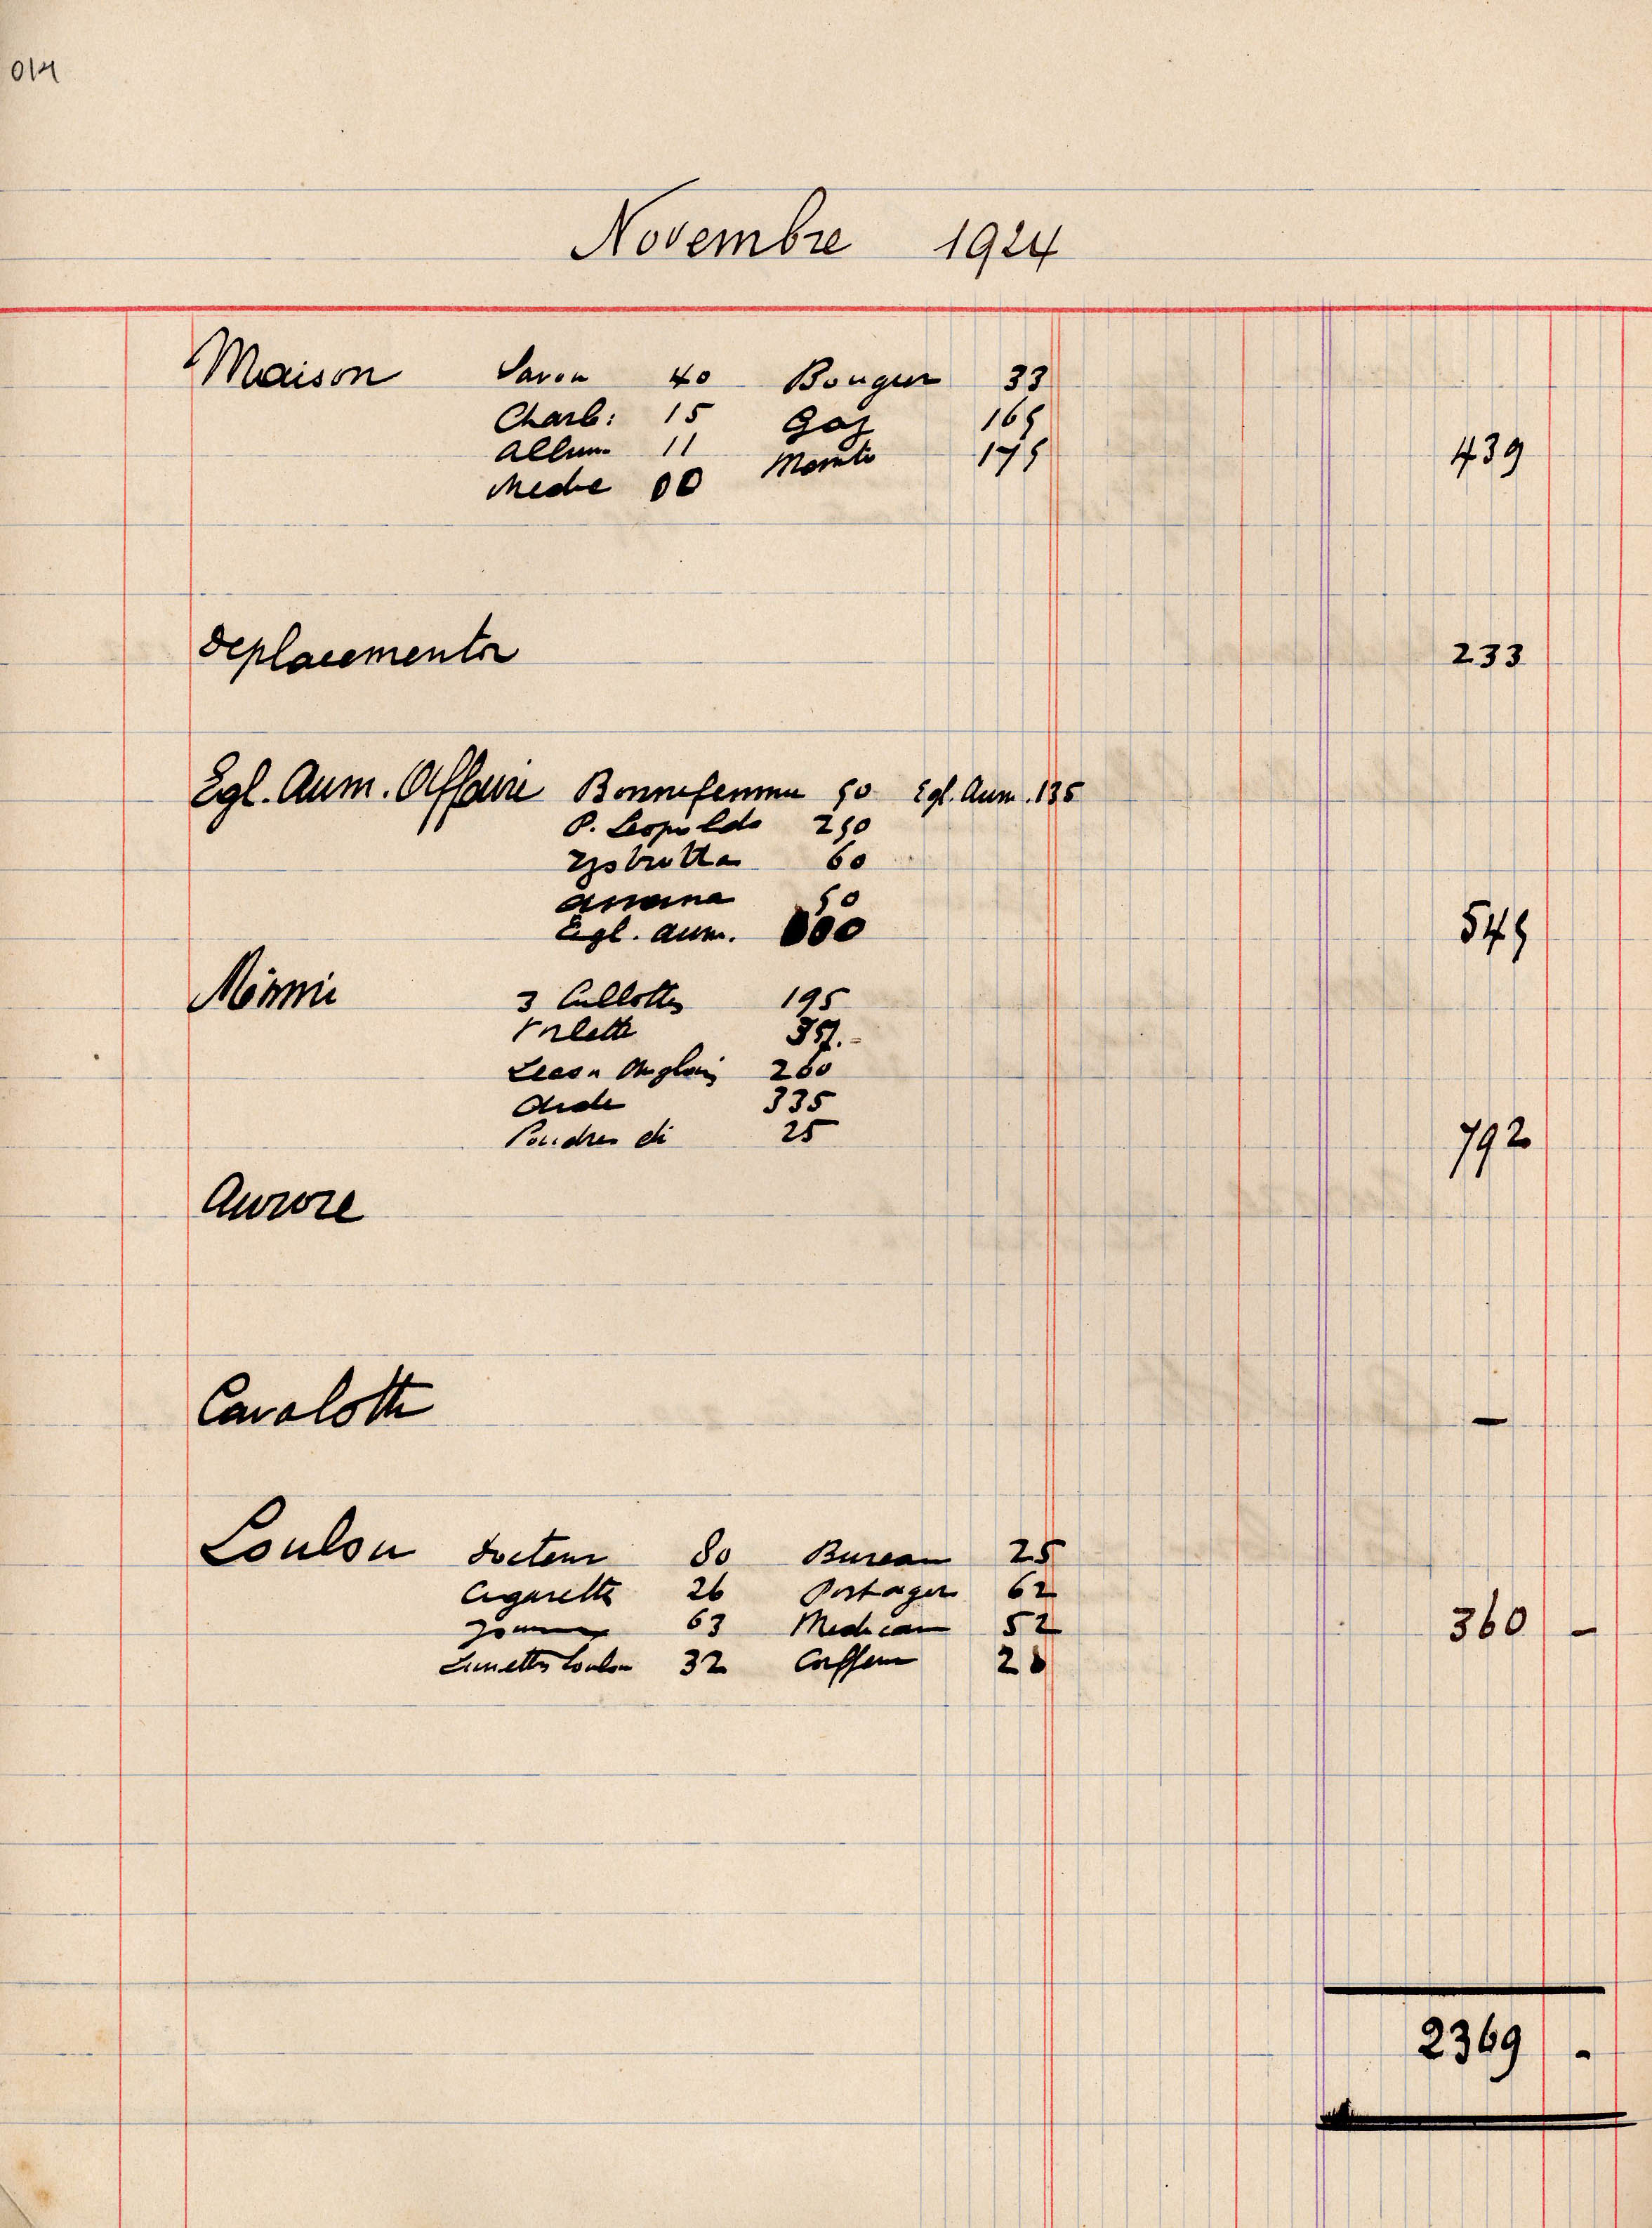 014
Novembre 1924
Maison Savon 40 Bougies 33
Charb: 15 Gaz 165
Allum 11 175
00
439
Deplacements 233
Egl. Aum. Affaire Bonnefemme 50 Egl. Aum. 135
P. Leopoldo 250
60
50
Egl. Aum. 000
545
Mimmi 3 Cullottes 195
Toilette
Lecon Anglais 260
335
Poudres di 25
792
Aurore
Cavalotti –
Loulou Docteur 80 Bureau 25
Cigarette 26 62
63 Medicam 52
Lunettes Loulou 32 Coiffeur 20
360 –
2369 -